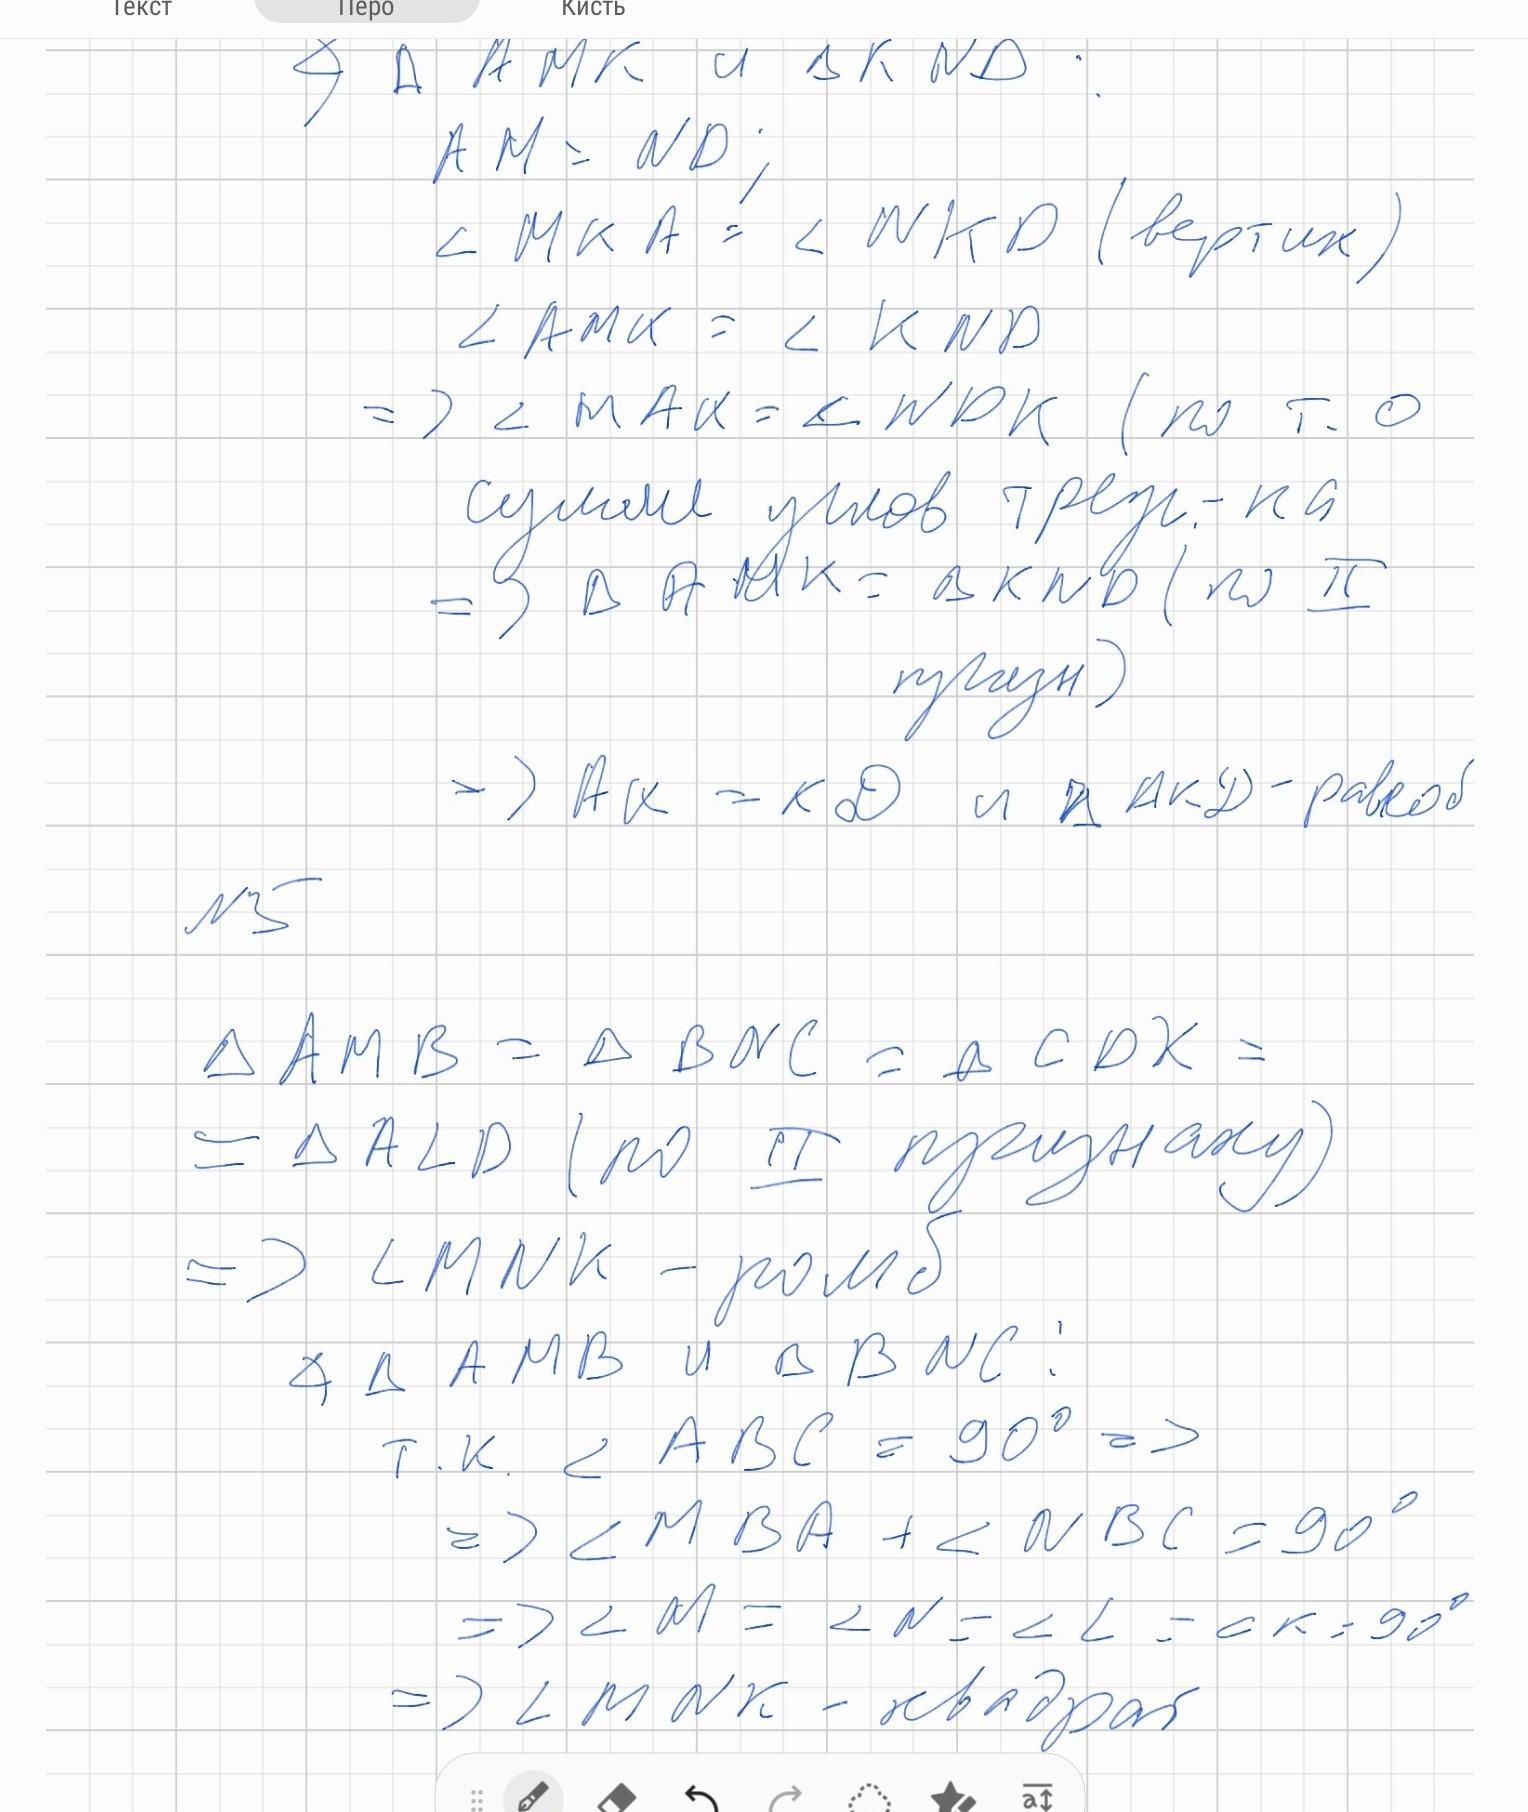 Текст Перо Кисть
∢ Δ AMK и ΔKND :
AM = ND;
∠ MKA = ∠ NKD (вертик)
∠ AMK = ∠ KND
=> ∠ MAK = ∠ NDK (по т. о
сумме углов треуг.-ка
=> Δ AMK = ΔKND (по II
призн)
=> AK = KD и Δ AKD - равноб
N5
Δ AMB = Δ BNC = Δ CDK =
= Δ ALD (по II признаку)
=> LMNK - ромб
∢ Δ AMB и Δ BNC :
т.к. ∠ ABC = 90° =>
=> ∠ MBA + ∠ NBC = 90°
=> ∠ M = ∠ N = ∠ L = ∠ K = 90°
=> LMNK - квадрат
a